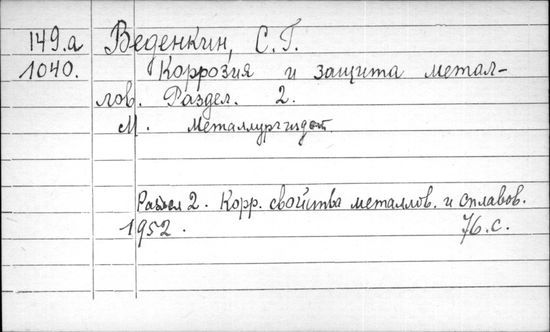 149.а Веденкин, С.Г.
1040. Коррозия и защита метал-
лов. Раздел. 2.
М. Металлургиздат
Раздел 2. Корр. свойства металлов. и сплавов.
1952. 76.с.